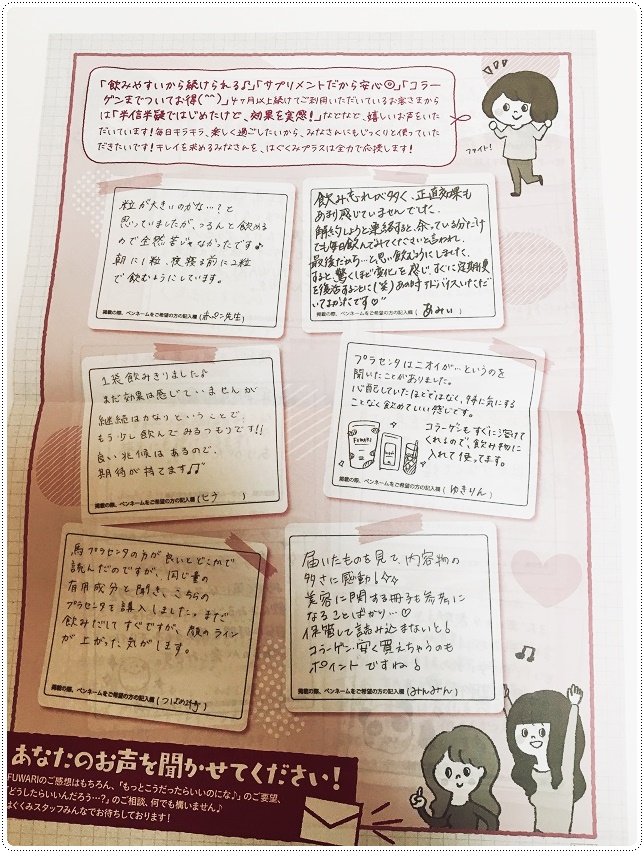 「飲みやすいから続けられる♪」「サプリメントだから安心◎」「コラー
ゲンまでついてお得(^^)」4ヶ月以上続けてご利用いただいているお客さまから
は「半信半疑ではじめたけど、効果を実感!」などなど、嬉しいお声をいた
だいています!毎日キラキラ、楽しく過ごしたいから、みなさんにもじっくりと使っていた
だきたいです!キレイを求めるみなさんを、はぐくみプラスは全力で応援します!
ファイト!
粒が大きいのかな…?と
思っていましたが、つるんと飲める
ので全然苦じゃなかったです♪
朝に1粒、夜寝る前に2粒
で飲むようにしています。
掲載の際、ペンネームをご希望の方の記入欄(赤ペン先生)
飲み忘れが多く、正直効果も
あまり感じていませんでした。
解約しようと連絡すると、余っている分だけ
でも毎日飲んでみてくださいと言われ、
最後だから…と思い飲むようにしました。
すると、驚くほど変化を感じ、すぐに定期便
を復活することに(笑)あの時アドバイスいただ
いてよかったです♡"
掲載の際、ペンネームをご希望の方の記入欄(あみぃ)
1袋飲みきりました♪
まだ効果は感じていませんが
継続はかなりということで、
もう少し飲んでみるつもりです!!
良い兆候はあるので、
期待が持てます♫
掲載の際、ペンネームをご希望の方の記入欄(ヒラ)
プラセンタはニオイが…というのを
聞いたことがありました。
心配していたほどではなく、特に気にする
ことなく飲めていい感じです。
コラーゲンもすぐに溶けて
くれるので、飲み物に
入れて使ってます。
FUWARI
掲載の際、ペンネームをご希望の方の記入欄(ゆきりん)
馬プラセンタの方が良いとどこかで
読んだのですが、同じ量の
有用成分と聞き、こちらの
プラセンタを購入しました。まだ
飲みだしてすぐですが、顔のライン
が上がった気がします。
掲載の際、ペンネームをご希望の方の記入欄(つばめ)
届いたものを見て、内容物の
多さに感動!☆☆
美容に関する冊子も参考に
なることばかり…♡
保管して読み込まないと!
コラーゲン安く買えちゃうのも
ポイントですね!
掲載の際、ペンネームをご希望の方の記入欄(みんみん)
あなたのお声を聞かせてください!
FUWARIのご感想はもちろん、「もっとこうだったらいいのにな♪」のご要望、
「どうしたらいいんだろう…?」のご相談、何でも構いません♪
はぐくみスタッフみんなでお待ちしております!